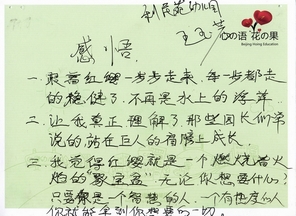 利民苑幼儿园
感悟
心の语 花の果
Beijing Hong Education
一、跟着红缨一步步走来,每一步都走
的稳健了,不再是水上的浮萍
二、让我真正理解了那些园长们常
说的,站在巨人的肩膀上成长
三、我觉得红缨就是一个燃烧着火
焰的“聚宝盆”无论你想要什么!
只要你是一个智慧的人,一个有态度的人
你就能拿到你想要的一切。